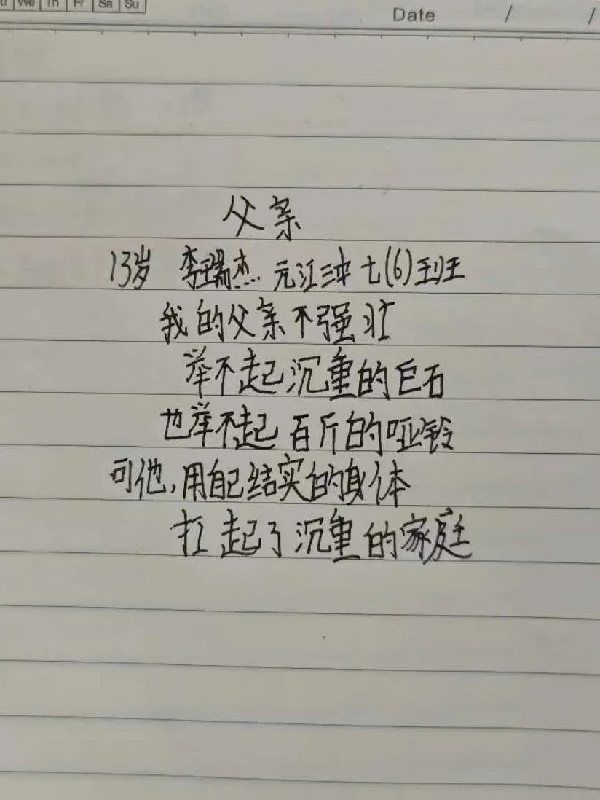 We Th Fr Sa Su
Date / /
父亲
13岁 李瑞杰 元江三中 七(6)班
我的父亲不强壮
举不起沉重的巨石
也举不起百斤的哑铃
可他,用自己结实的身体
扛起了沉重的家庭